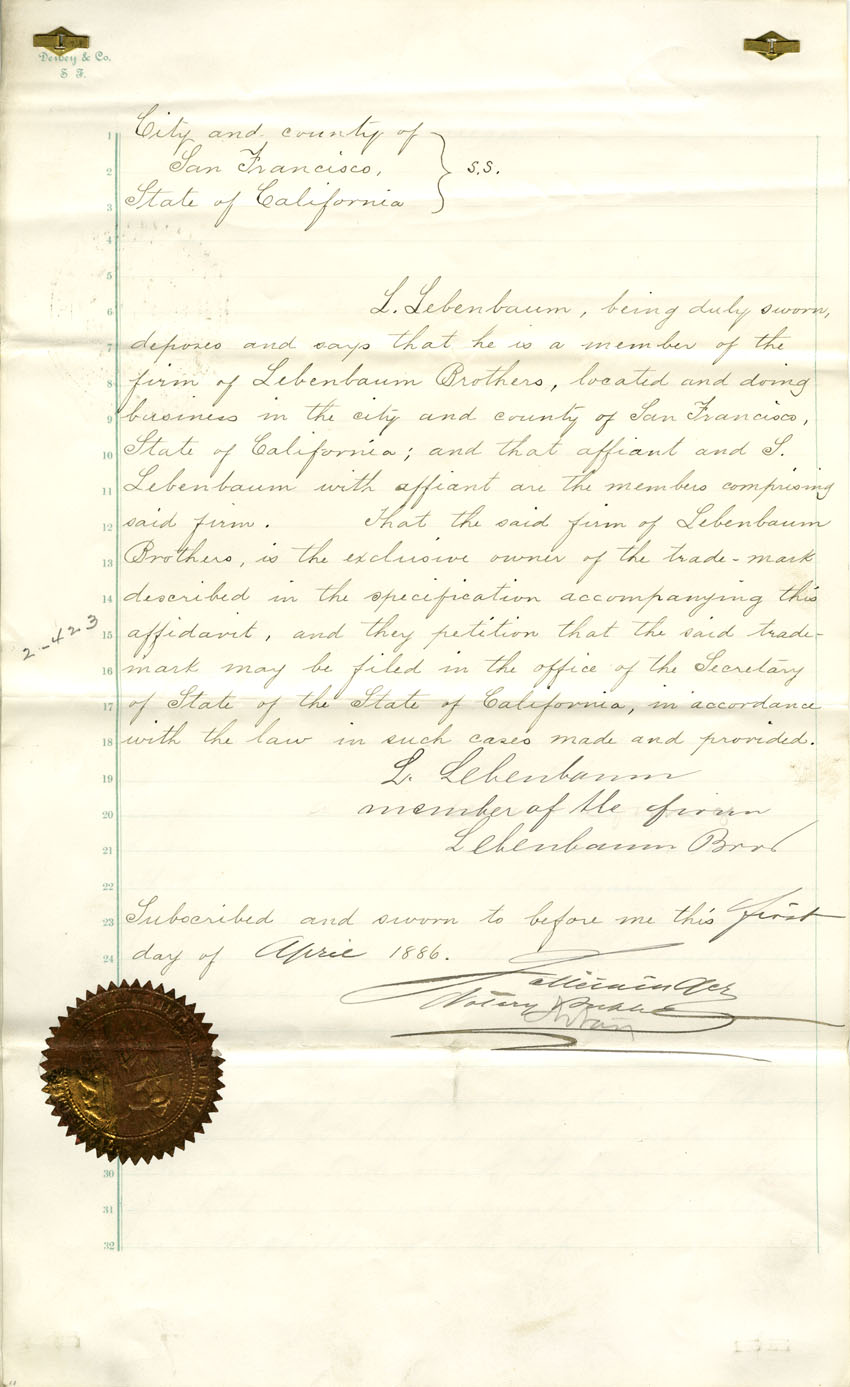 Dewey & Co.
S. F.
City and county of
San Francisco,
State of California
} s.s.
L. Lebenbaum, being duly sworn,
deposes and says that he is a member of the
firm of Lebenbaum Brothers, located and doing
business in the city and county of San Francisco,
State of California; and that affiant and S.
Lebenbaum with affiant are the members comprising
said firm. That the said firm of Lebenbaum
Brothers, is the exclusive owner of the trade-mark
described in the specification accompanying this
affidavit, and they petition that the said trade-
mark may be filed in the office of the Secretary
of State of the State of California, in accordance
with the law in such cases made and provided.
L. Lebenbaum
member of the firm
Lebenbaum Bros
Subscribed and sworn to before me this first
day of April 1886.
Notary Public
2-423
1
2
3
4
5
6
7
8
9
10
11
12
13
14
15
16
17
18
19
20
21
22
23
24
30
31
32